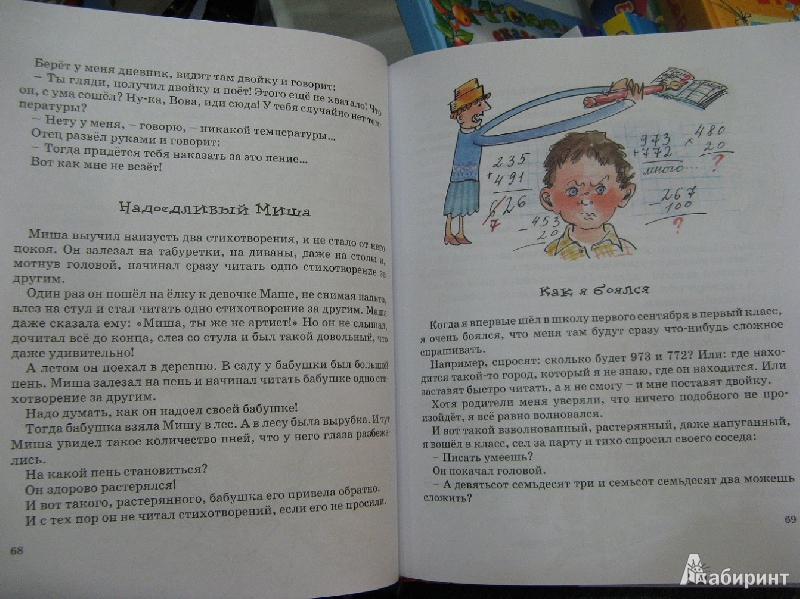 Берёт у меня дневник, видит там двойку и говорит:
– Ты гляди, получил двойку и поёт! Этого ещё не хватало! Что
он, с ума сошёл? Ну-ка, Вова, иди сюда! У тебя случайно нет тем-
пературы?
– Нету у меня, – говорю, – никакой температуры...
Отец развёл руками и говорит:
– Тогда придётся тебя наказать за это пение...
Вот как мне не везёт!
Надоедливый Миша
Миша выучил наизусть два стихотворения, и не стало от него
покоя. Он залезал на табуретки, на диваны, даже на столы и,
мотнув головой, начинал сразу читать одно стихотворение за
другим.
Один раз он пошёл на ёлку к девочке Маше, не снимая пальто,
влез на стул и стал читать одно стихотворение за другим. Маша
даже сказала ему: «Миша, ты же не артист!» Но он не слышал,
дочитал всё до конца, слез со стула и был такой довольный, что
даже удивительно!
А летом он поехал в деревню. В саду у бабушки был большой
пень. Миша залезал на пень и начинал читать бабушке одно сти-
хотворение за другим.
Надо думать, как он надоел своей бабушке!
Тогда бабушка взяла Мишу в лес. А в лесу была вырубка. И тут
Миша увидел такое количество пней, что у него глаза разбежа-
лись.
На какой пень становиться?
Он здорово растерялся!
И вот такого, растерянного, бабушка его привела обратно.
И с тех пор он не читал стихотворений, если его не просили.
68
235
491
6 26
7
453
20
973
+772
много...
× 480
20
?
–267
100
?
Как я боялся
Когда я впервые шёл в школу первого сентября в первый класс,
я очень боялся, что меня там будут сразу что-нибудь сложное
спрашивать.
Например, спросят: сколько будет 973 и 772? Или: где нахо-
дится такой-то город, который я не знаю, где он находится. Или
заставят быстро читать, а я не смогу – и мне поставят двойку.
Хотя родители меня уверяли, что ничего подобного не про-
изойдёт, я всё равно волновался.
И вот такой взволнованный, растерянный, даже напуганный,
я вошёл в класс, сел за парту и тихо спросил своего соседа:
– Писать умеешь?
Он покачал головой.
– А девятьсот семьдесят три и семьсот семьдесят два можешь
сложить?
69
Лабиринт